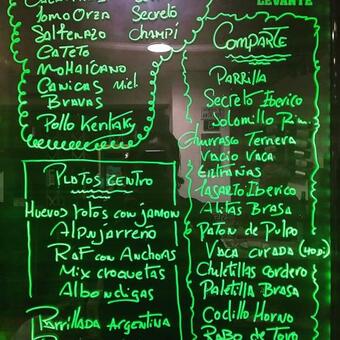 LEVANTE
Lomo Orza Secreto
Saltenazo Champi
CateTo
MoHaicano
Canicas miel
Bravas
Pollo Kentaky
PlaTos CenTro
Huevos rotos con jamon
Alpujarreño
RaF con Anchoas
Mix croquetas
Albondigas
Parrillada Argentina
ComparTe
Parrilla
Secreto Iberico
Solomillo
Churrasco Ternera
Vacio Vaca
EnTrañas
Lagarto Iberico
Alitas Brasa
Paton de Pulpo
Vaca curada (40 Di)
Chuletillas cordero
Paletilla Brasa
Codillo Horno
Rabo de Toro